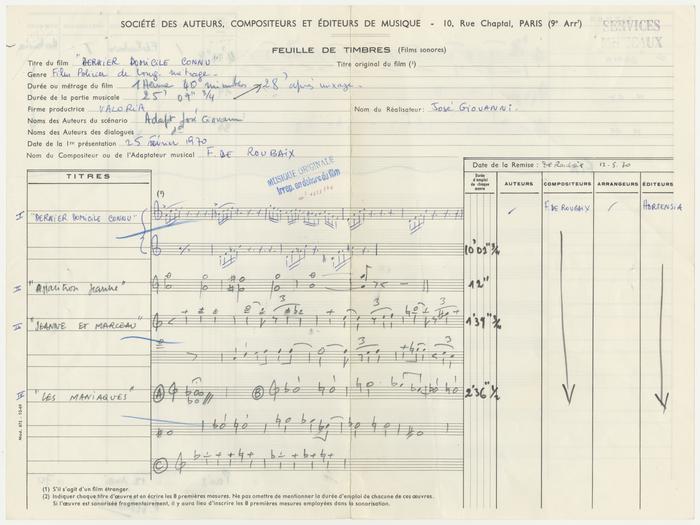 SOCIÉTÉ DES AUTEURS, COMPOSITEURS ET ÉDITEURS DE MUSIQUE - 10, Rue Chaptal, PARIS (9e Arrt)
SERVICES
FEUILLE DE TIMBRES (Films sonores)
Titre du film "DERNIER DOMICILE CONNU" Titre original du film (1)
Genre Film Policier de long métrage.
Durée ou métrage du film 1 Heure 40 minutes 28' après mixage.
Durée de la partie musicale 25' 09" 3/4
Firme productrice VALORIA Nom du Réalisateur : José GIOVANNI.
Noms des Auteurs du scénario Adapt José Giovanni
Noms des Auteurs des dialogues do
Date de la 1re présentation 25 février 1970
Nom du Compositeur ou de l'Adaptateur musical F. DE ROUBAIX
MUSIQUE ORIGINALE
Date de la Remise : De Roubaix 12-5.70
TITRES
(2)
Durée d'emploi de chaque œuvre
AUTEURS
COMPOSITEURS
ARRANGEURS
ÉDITEURS
I "DERNIER DOMICILE CONNU" F. DE ROUBAIX HORTENSIA
10'03" 3/4
II "Apparition Jeanne" 12"
III "JEANNE ET MARCEAU" 3 3 3 1'39" 3/4
3 3
IV "LES MANIAQUES" A B 2'36" 1/2
C
(1) S'il s'agit d'un film étranger.
(2) Indiquer chaque titre d'œuvre et en écrire les 8 premières mesures. Ne pas omettre de mentionner la durée d'emploi de chacune de ces œuvres.
Si l'œuvre est sonorisée fragmentairement, il y aura lieu d'inscrire les 8 premières mesures employées dans la sonorisation.